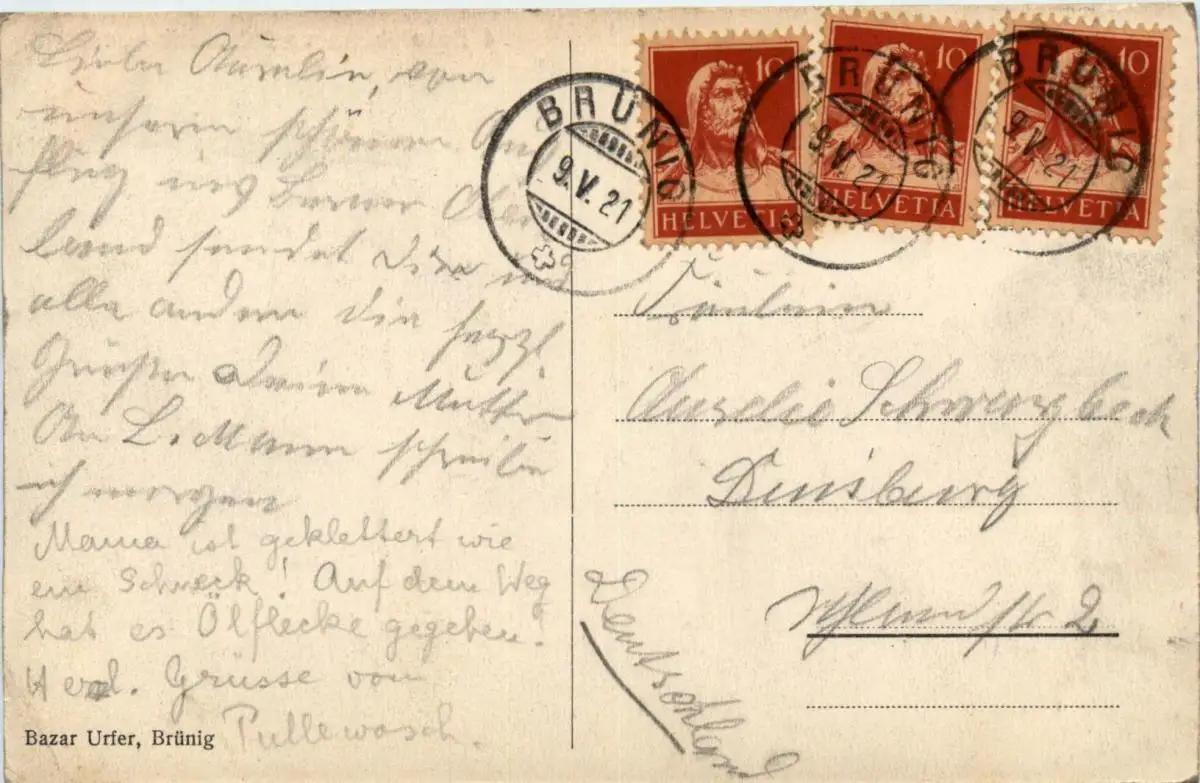 Liebe Aurelie, von
unserm schönen Aus
flug ins Berner Ober
land sendet Dir und
alle andern die herzl
Grüße Deine Mutter
An L. Mann schreibe
ich morgen
Mama ist geklettert wie
ein Schneck! Auf dem Weg
hat es Ölflecke gegeben.
Herzl. Grüsse vom
Pullewasch.
Bazar Urfer, Brünig
BRÜNIG
9.V.21
10
HELVETIA
BRÜNIG
9.V.21
10
HELVETIA
BRÜNIG
9.V.21
10
HELVETIA
Fräulein
Aurelie Schwarzbeck
Duisburg
2
Deutschland